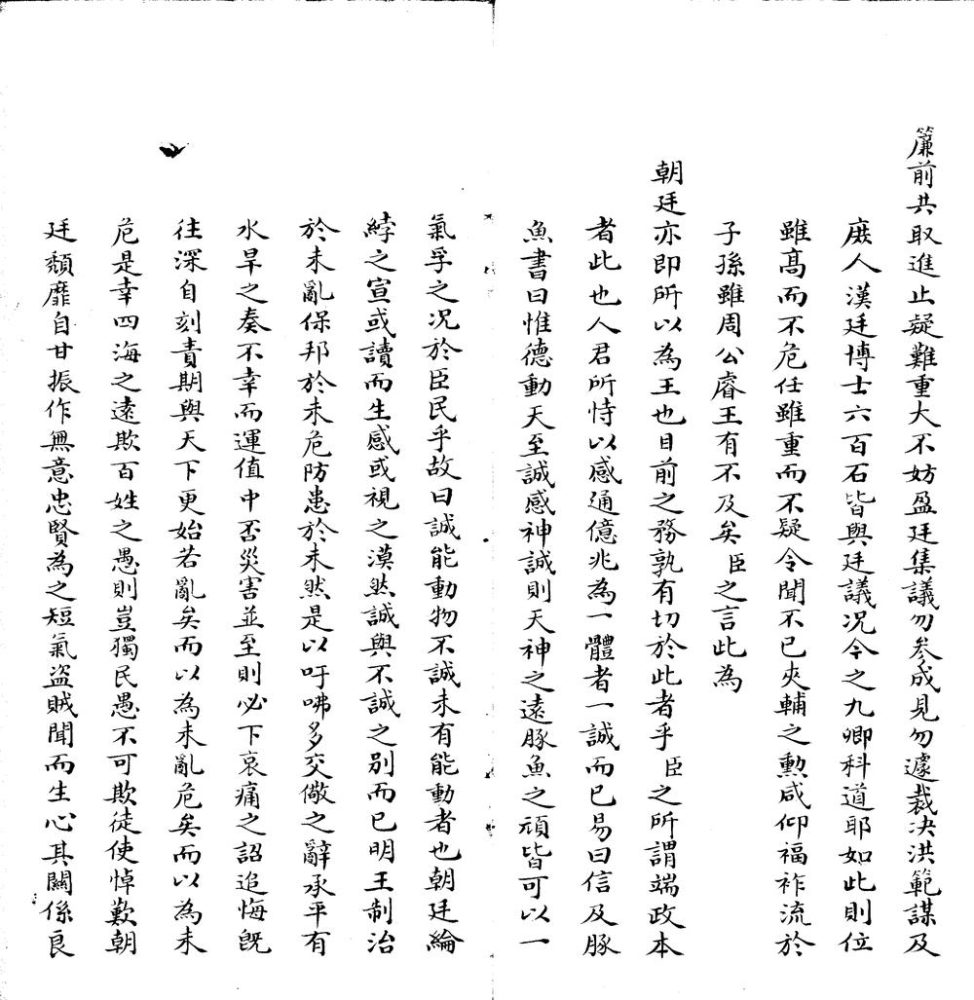 簾前共取進止疑難重大不妨盈廷集議勿參成見勿遽裁决洪範謀及
庶人漢廷博士六百石皆與廷議况今之九卿科道耶如此則位
雖髙而不危任雖重而不疑令聞不已夾輔之勲咸仰福祚流於
子孫雖周公睿王有不及矣臣之言此為
朝廷亦即所以為王也目前之務孰有切於此者乎臣之所謂端政本
者此也人君所恃以感通億兆為一體者一誠而已易曰信及豚
魚書曰惟德動天至誠感神誠則天神之遠豚魚之頑皆可以一
氣孚之况於臣民乎故曰誠能動物不誠未有能動者也朝廷綸
綍之宣或讀而生感或視之漠然誠與不誠之別而已明王制治
於未亂保邦於未危防患於未然是以吁咈多交儆之辭承平有
水旱之奏不幸而運值中否災害並至則必下哀痛之詔追悔旣
往深自刻責期與天下更始若亂矣而以為未亂危矣而以為未
危是幸四海之遠欺百姓之愚則豈獨民愚不可欺徒使悼歎朝
廷頽靡自甘振作無意忠賢為之短氣盗賊聞而生心其關係良